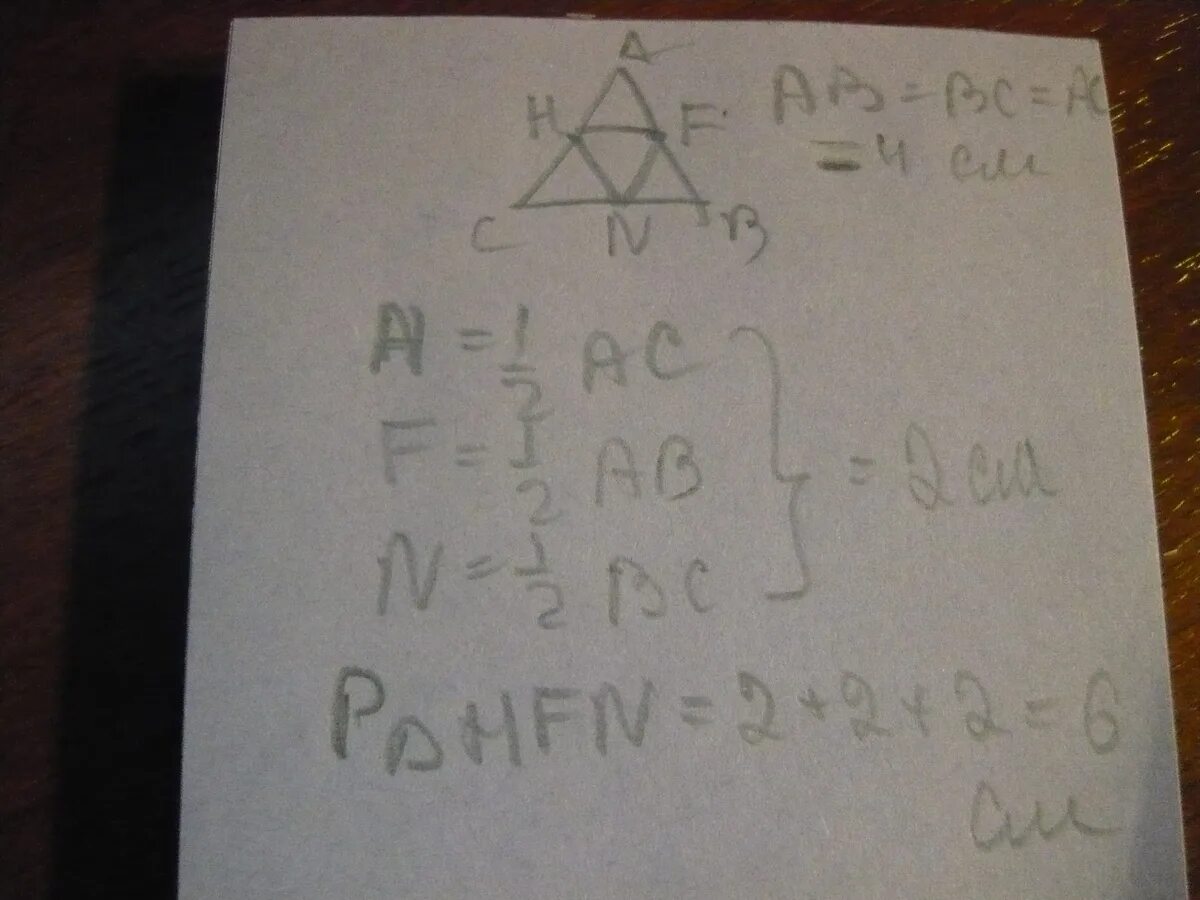 A
H F AB = BC = AC
= 4 см
C N B
H = 1/2 AC
F = 1/2 AB
N = 1/2 BC
= 2 см
P△HFN = 2 + 2 + 2 = 6
см